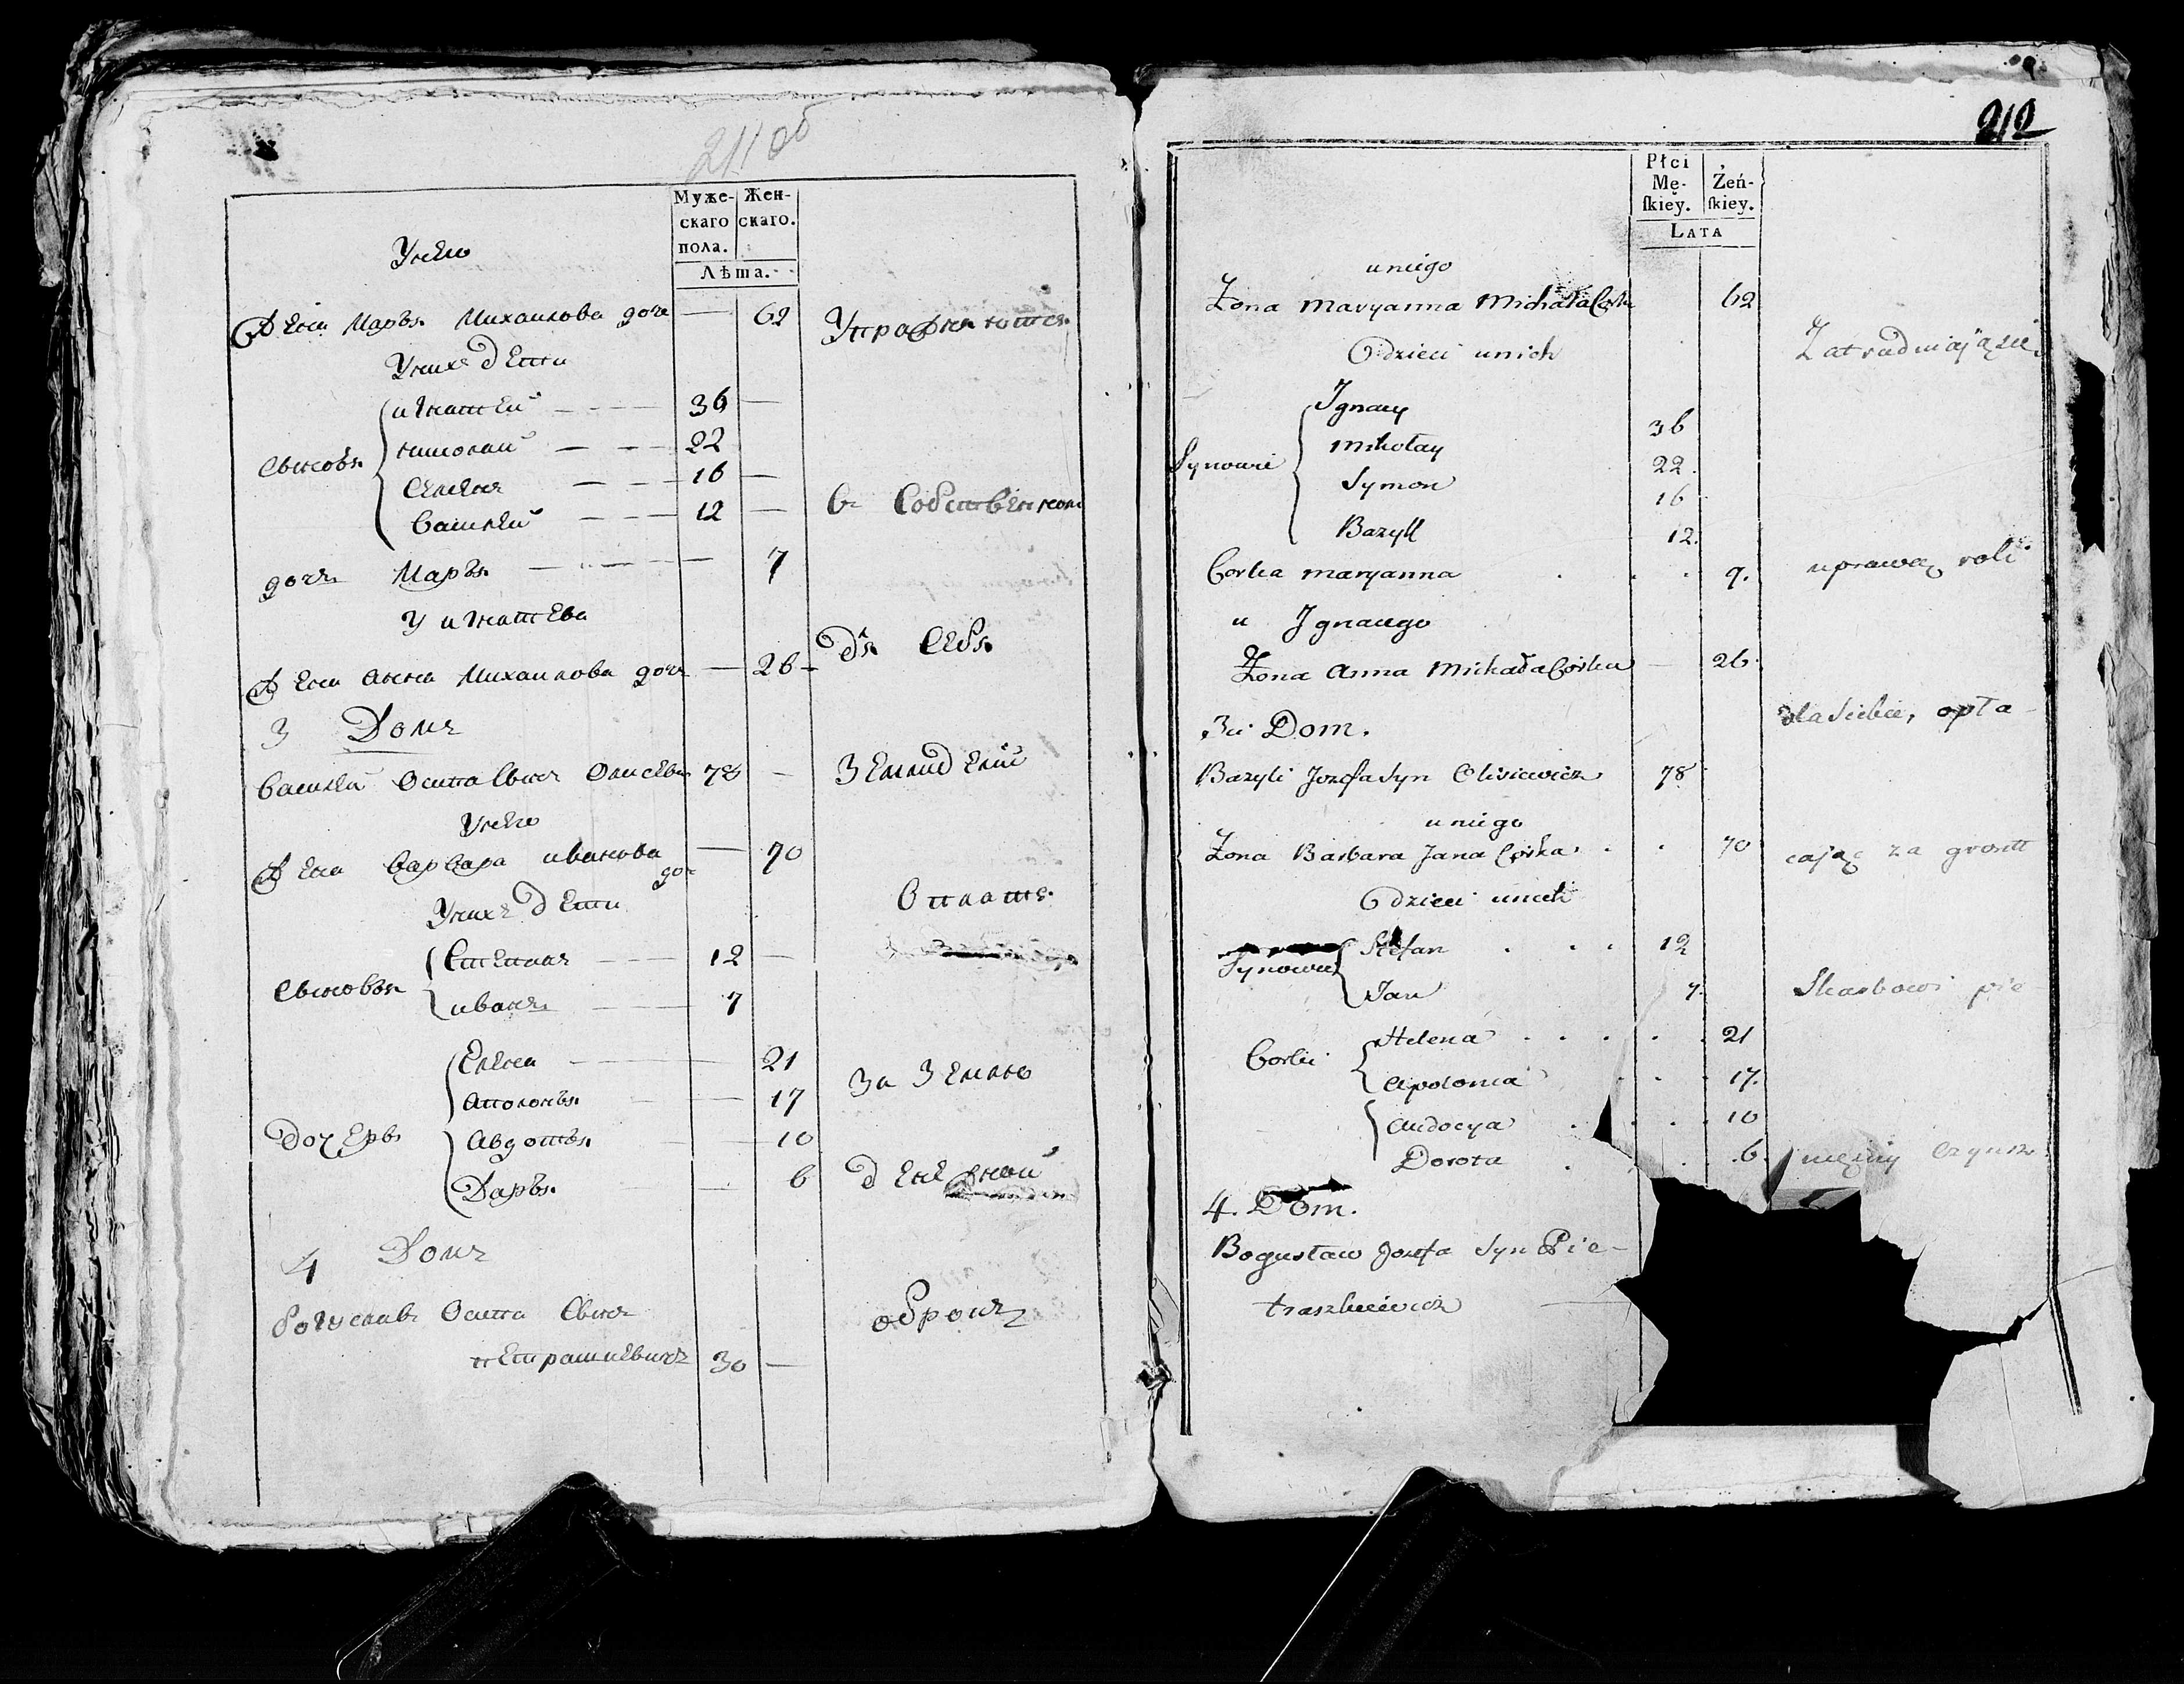 211 об
Муже-
скаго
пола.
Жен-
скаго.
Лѣта.
Унего
Жена Марья Михаилова доч 62 Упражняются
Унихъ Дети
игнатей 36
николай 22
Сыновья
Семенъ 16
Василей 12 въ Собственном
дочь Марья 7
У игнатева
Для Себя
Жена Анна Михаилова дочь 26
3 Домъ
Василей Осипа Сынъ Олисевичъ 78 Земледелии
Унего
Жена Варвара иванова доч 70
Унихъ Дети Оплатя
Степанъ 12
Сыновья
иванъ 7
Елена 21 За Землю
аполонья 17
Дочерь Авдотья 10
Дарья 6 денежной
4 Домъ
богуславъ Осипа Сынъ оброкъ
петрашкевичъ 30
212
Płci
Mę-
skiey.
Żeń-
skiey.
Lata
u niego
Żona Maryanna Michała Corka 62
Zatrudniaią się
O dzieci unich
Jgnacy 36
Mikołay 22.
Synowie
Symon 16
Bazyli 12.
Corka Maryanna 7. uprawą roli
u Jgnacego
Żona Anna Michała Corka 26.
dla siebie, opła-
3ci Dom.
Bazyli Jozefa Syn Olisiewicz 78
u niego
Żona Barbara Jana Corka 70 caiąc za grontt
O dzieci unich
Stefan 12
Synowie
Jan 7. Skarbowi pie-
Helena 21
Corki
Apolonia 17.
Audocya 10
Dorota 6. niężny Czynsz
4. Dom.
Bogusław Jozefa Syn Pie-
traszkiewicz